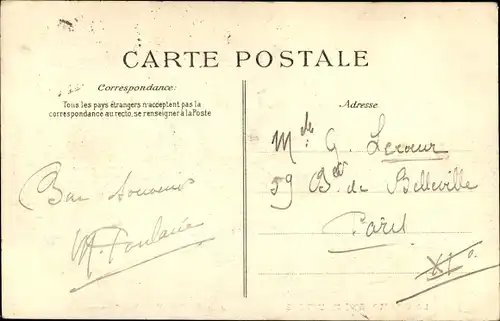 CARTE POSTALE
Correspondance:
Tous les pays étrangers n'acceptent pas la
correspondance au recto, se renseigner à la Poste
Adresse
G. Leroux
59 Bd de Belleville
Paris
XIe
Bon souvenir